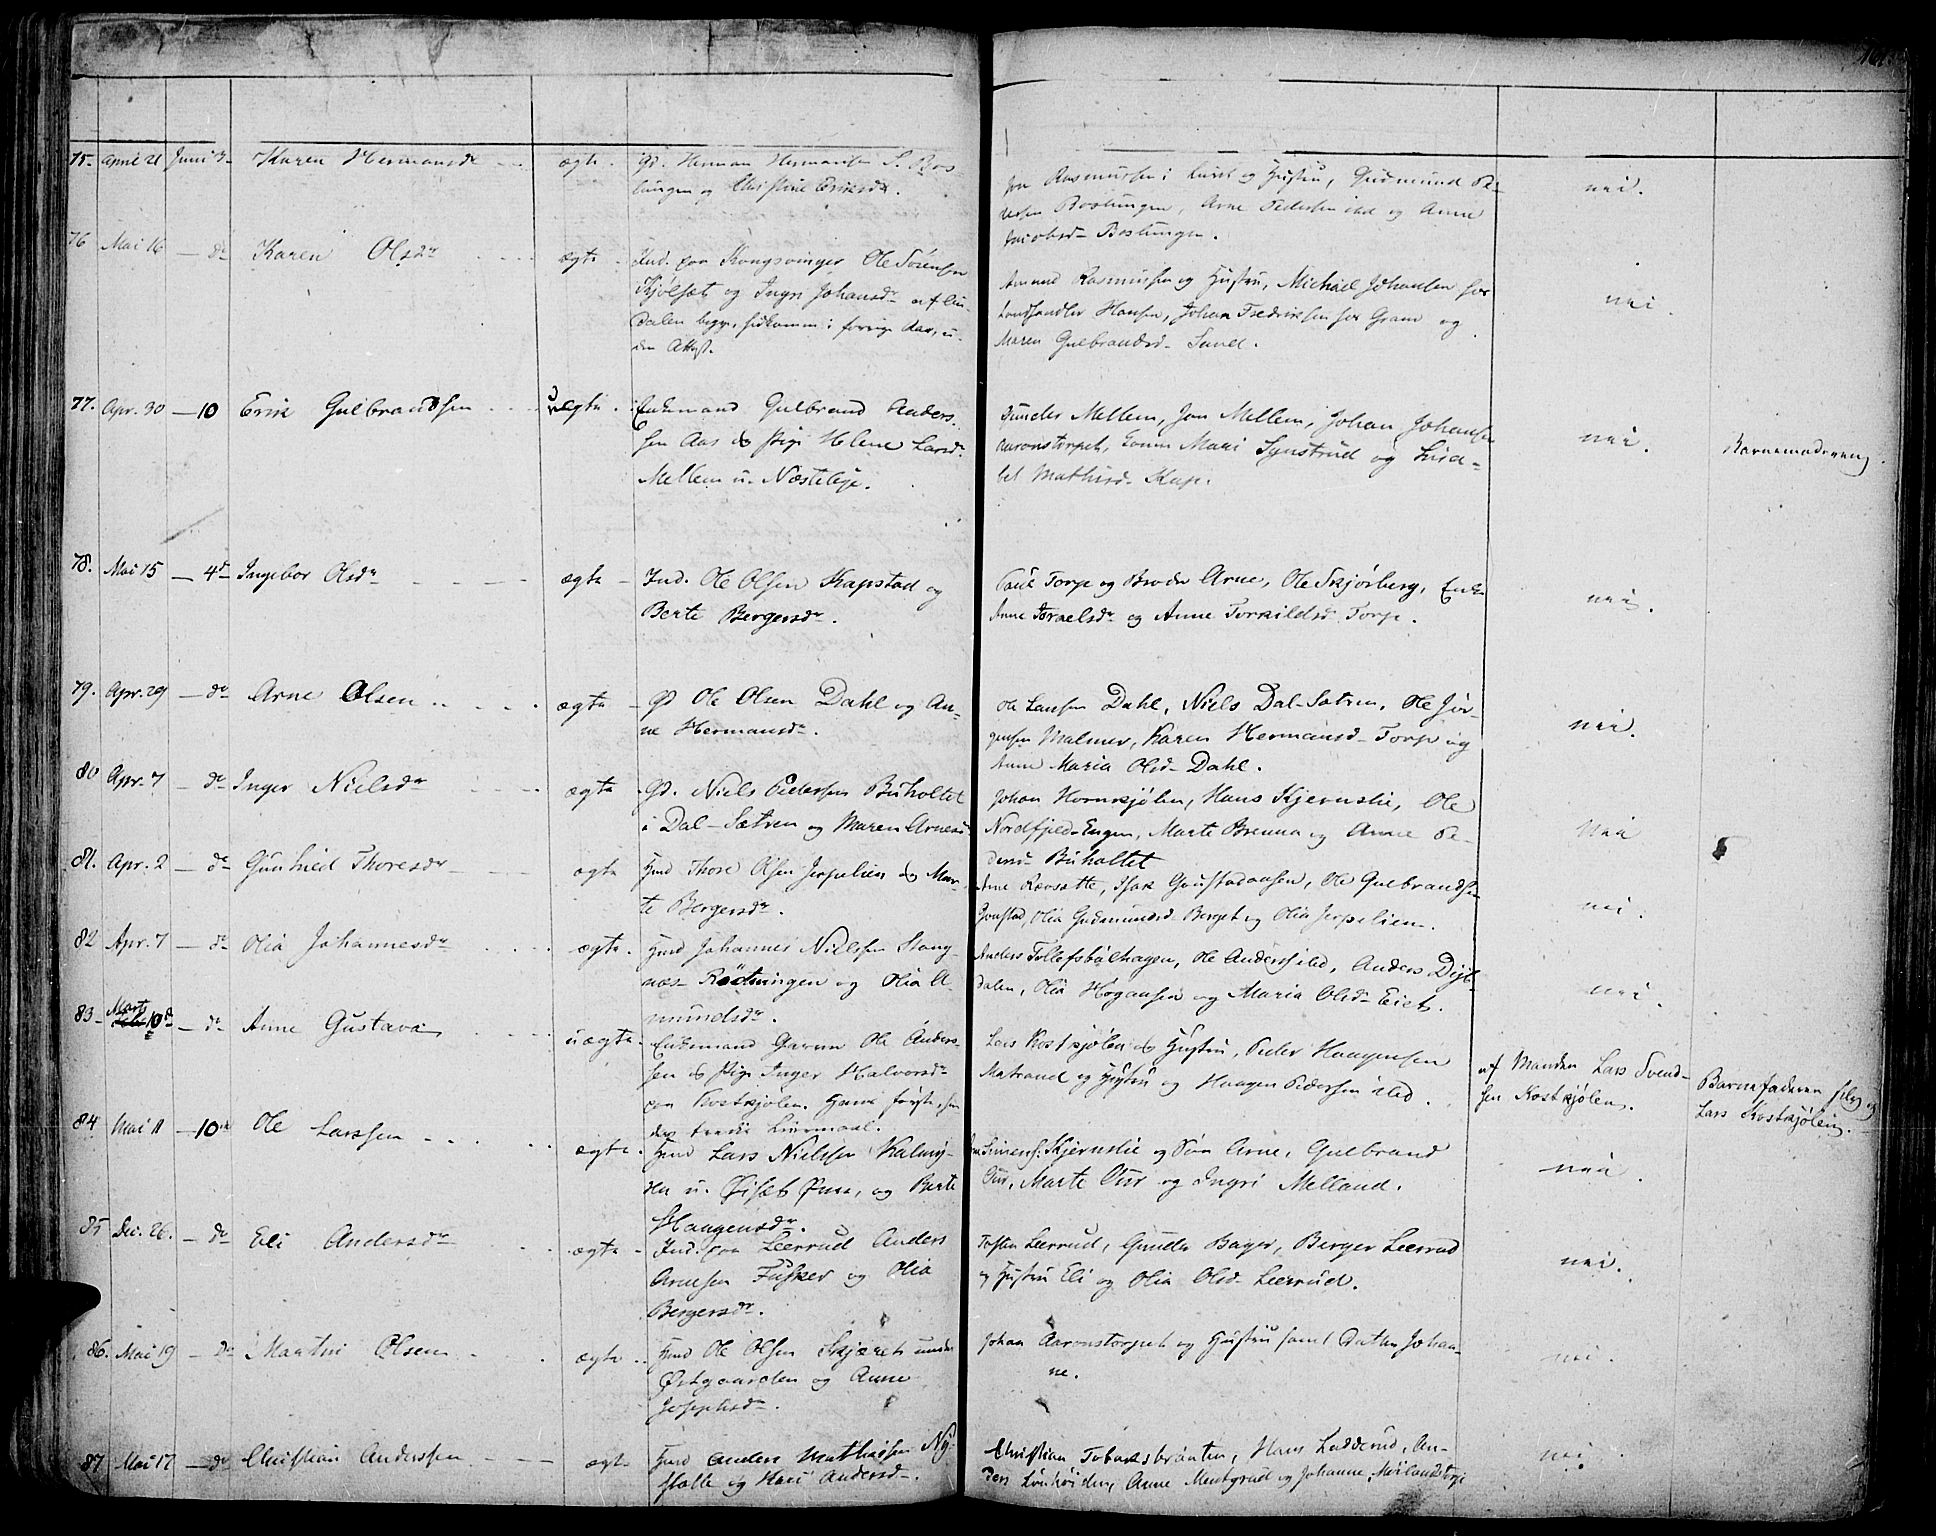 75. April 21 Juni 3 Karen Hermansdr ægte. Gd. Herman Hermansen S. Bos
lungen og Christine Eriksdr.
Rasmussen i Lund og Hustru, Gudmund Pe-
dersen Boslungen, Arne Pedersen ibd og Anne
Jacobsd. Boslungen.
nei.
76 Mai 16 — do Karen Olsdr ægte Ind. paa Kongsvinger Ole Sørensen
Kjølset og Ingri Johansdr
dalen i forrige Aar, u-
den Attest.
Amund Rasmussen og Hustru, Michael Johansen hos
Landhandler Hansen, Johan Fredriksen hos Gram og
Maren Gulbrandsd. Sund.
nei.
77. Apr. 30 — 10 Erik Gulbrandsen uægte. Enkemand Gulbrand Anders-
sen Aas & Pige Helene Larsdr
Mellem u. Næsteleje.
Gunder Mellem, Jon Mellem, Johan Johansen
Aaronstorpet, Mari Synstrud og Lisa-
bet Mathisd. Kap.
nei.
Barnemoderen.
78. Mai 15 — 4de Ingebor Olsdr ægte Ind. Ole Olsen Kapstad og
Berte Bergersdr.
Paul Torp og Broder Arne, Ole Skjørberg, Enke
Anne Israelsdr og Anne Torkildsd. Torp.
nei.
79. Apr. 29 — do Arne Olsen ægte Gd Ole Olsen Dahl og An-
ne Hermansdr.
Ole Larsen Dahl, Niels Dal-Sætren, Ole Jør-
gensen Malmer, Karen Hermansd. Torp og
Anne Maria Olsd. Dahl.
nei.
80 Apr. 7 — do Inger Nielsdr ægte Gd. Niels Pedersen Buholtet
i Dal-Sætren og Maren Arnesd
Johan Hornkjølen, Hans Kjernslie, Ole
Nordfjeld-Engen, Marte Brenna og Anne Pe-
dersd. Buholtet
nei
81. Apr. 2 — do Gunhild Thoresdr ægte Hmd Thore Olsen Jerpelien & Mar-
te Bergersdr.
Arne Rævsette, Isak Gaustadaasen, Ole Gulbrandsen
Gaustad, Olia Gudmundsd. Berget og Olia Jerpelien.
nei.
82 Apr. 7 — do Olia Johannesdr ægte. Hmd Johannes Nielsen Stang-
næs-Rødningen og Olia A-
mundsdr.
Anders Tollefsbølhagen, Ole Anders ibd, Anders Digl-
dalen, Olia Høgaasen og Maria Olsd. Eiet.
nei.
83 — Marts 10de — do Anne Gustava uægte. Enkemand Garver Ole Anders-
sen & Pige Inger Halvorsdr
paa Kostkjølen. Hans første, hen-
des tredie Leiermaal.
Lars Kostkjølen & Hustru, Peder Haagensen
Matrand og Hustru og Haagen Pedersen ibd.
af Manden Lars Svend-
sen Kostkjølen.
Barnefaderen selv og
Lars Kostkjølen.
84 Mai 11 — 10de Ole Larssen ægte. Hmd Lars Nielsen Kalneg-
den u. Øiset og Berte
Haagensdr.
Simens. Kjernslie og Søn Arne, Gulbrand
Tur, Marte Tur og Ingri Melland.
nei.
85 Dec. 26. — do Eli Andersdr ægte Ind. paa Leerrud Anders
Arnesen Fusker og Olia
Bergersdr.
Tosten Leerrud, Gunder Bager, Berger Leerrud
og Hustru Eli og Olia Olsd. Leerrud.
nei.
86. Mai 19 — do Martin Olsen ægte Hmd Ole Olsen Skjæret under
Østgaarden og Anne
Josephsdr.
Johan Aaronstorpet og Hustru samt Datter Johan-
ne.
nei.
87 Mai 17 — do Christian Anderssen ægte Hmd Anders Mathisen Ny-
stølte og Kari Andersd.
Christian Tobaksbraaten, Hans Ladderud, An-
ders Anne Mentgrud og Johanne Morlandstorp
nei.